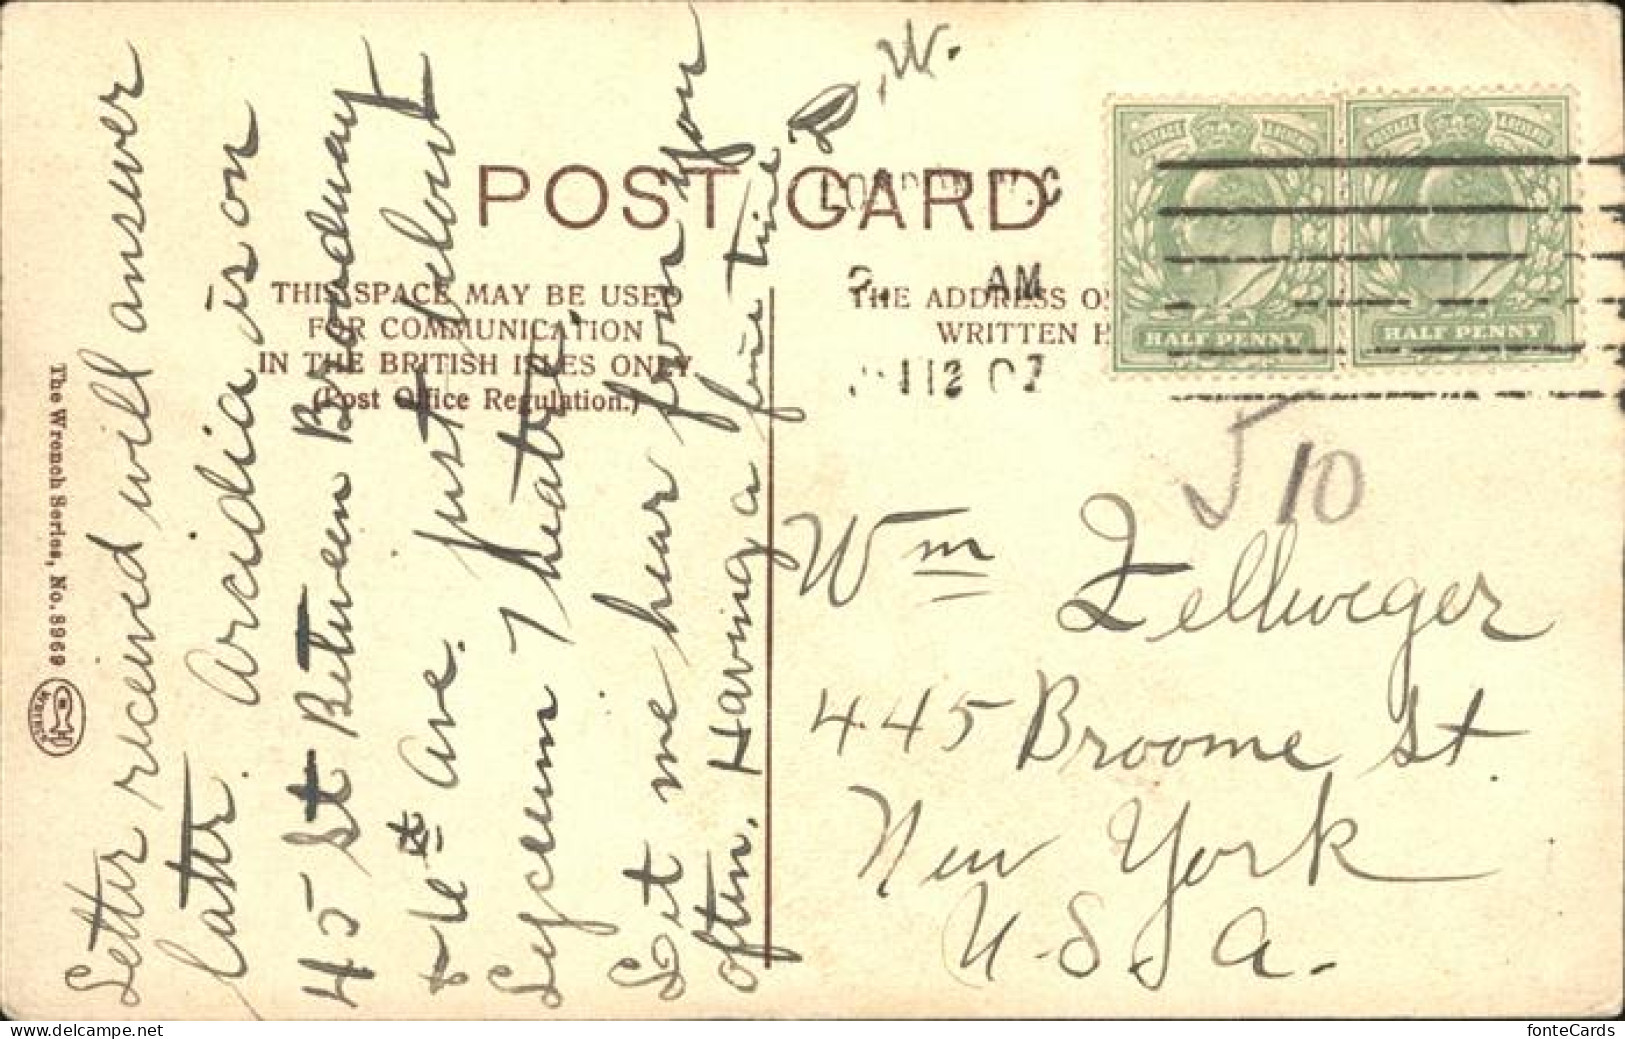 W.
POST CARD
THIS SPACE MAY BE USED
FOR COMMUNICATION
IN THE BRITISH ISLES ONLY
(Post Office Regulation.)
THE ADDRESS O
WRITTEN
LONDON W.C
AM
12 07
POSTAGE & REVENUE
HALF PENNY
POSTAGE & REVENUE
HALF PENNY
10
Letter received will answer
later. Arcidia is on
45 St Between Broadway
& 6e th ave. just below
Lyceum Theatre.
Let me hear from you
often. Having a fine time
Wm Zellweger
445 Broome St.
New York
U.S.A.
The Wrench Series, No. 8969
WRENCH
fonteCards